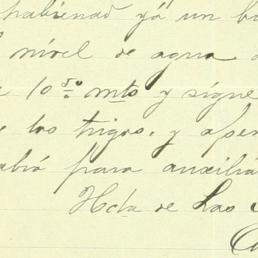 habiendo yá un bu
nivel de agua
10 50 mts y sigue
los trigos, y apen
para auxiliá
Hcda de Las